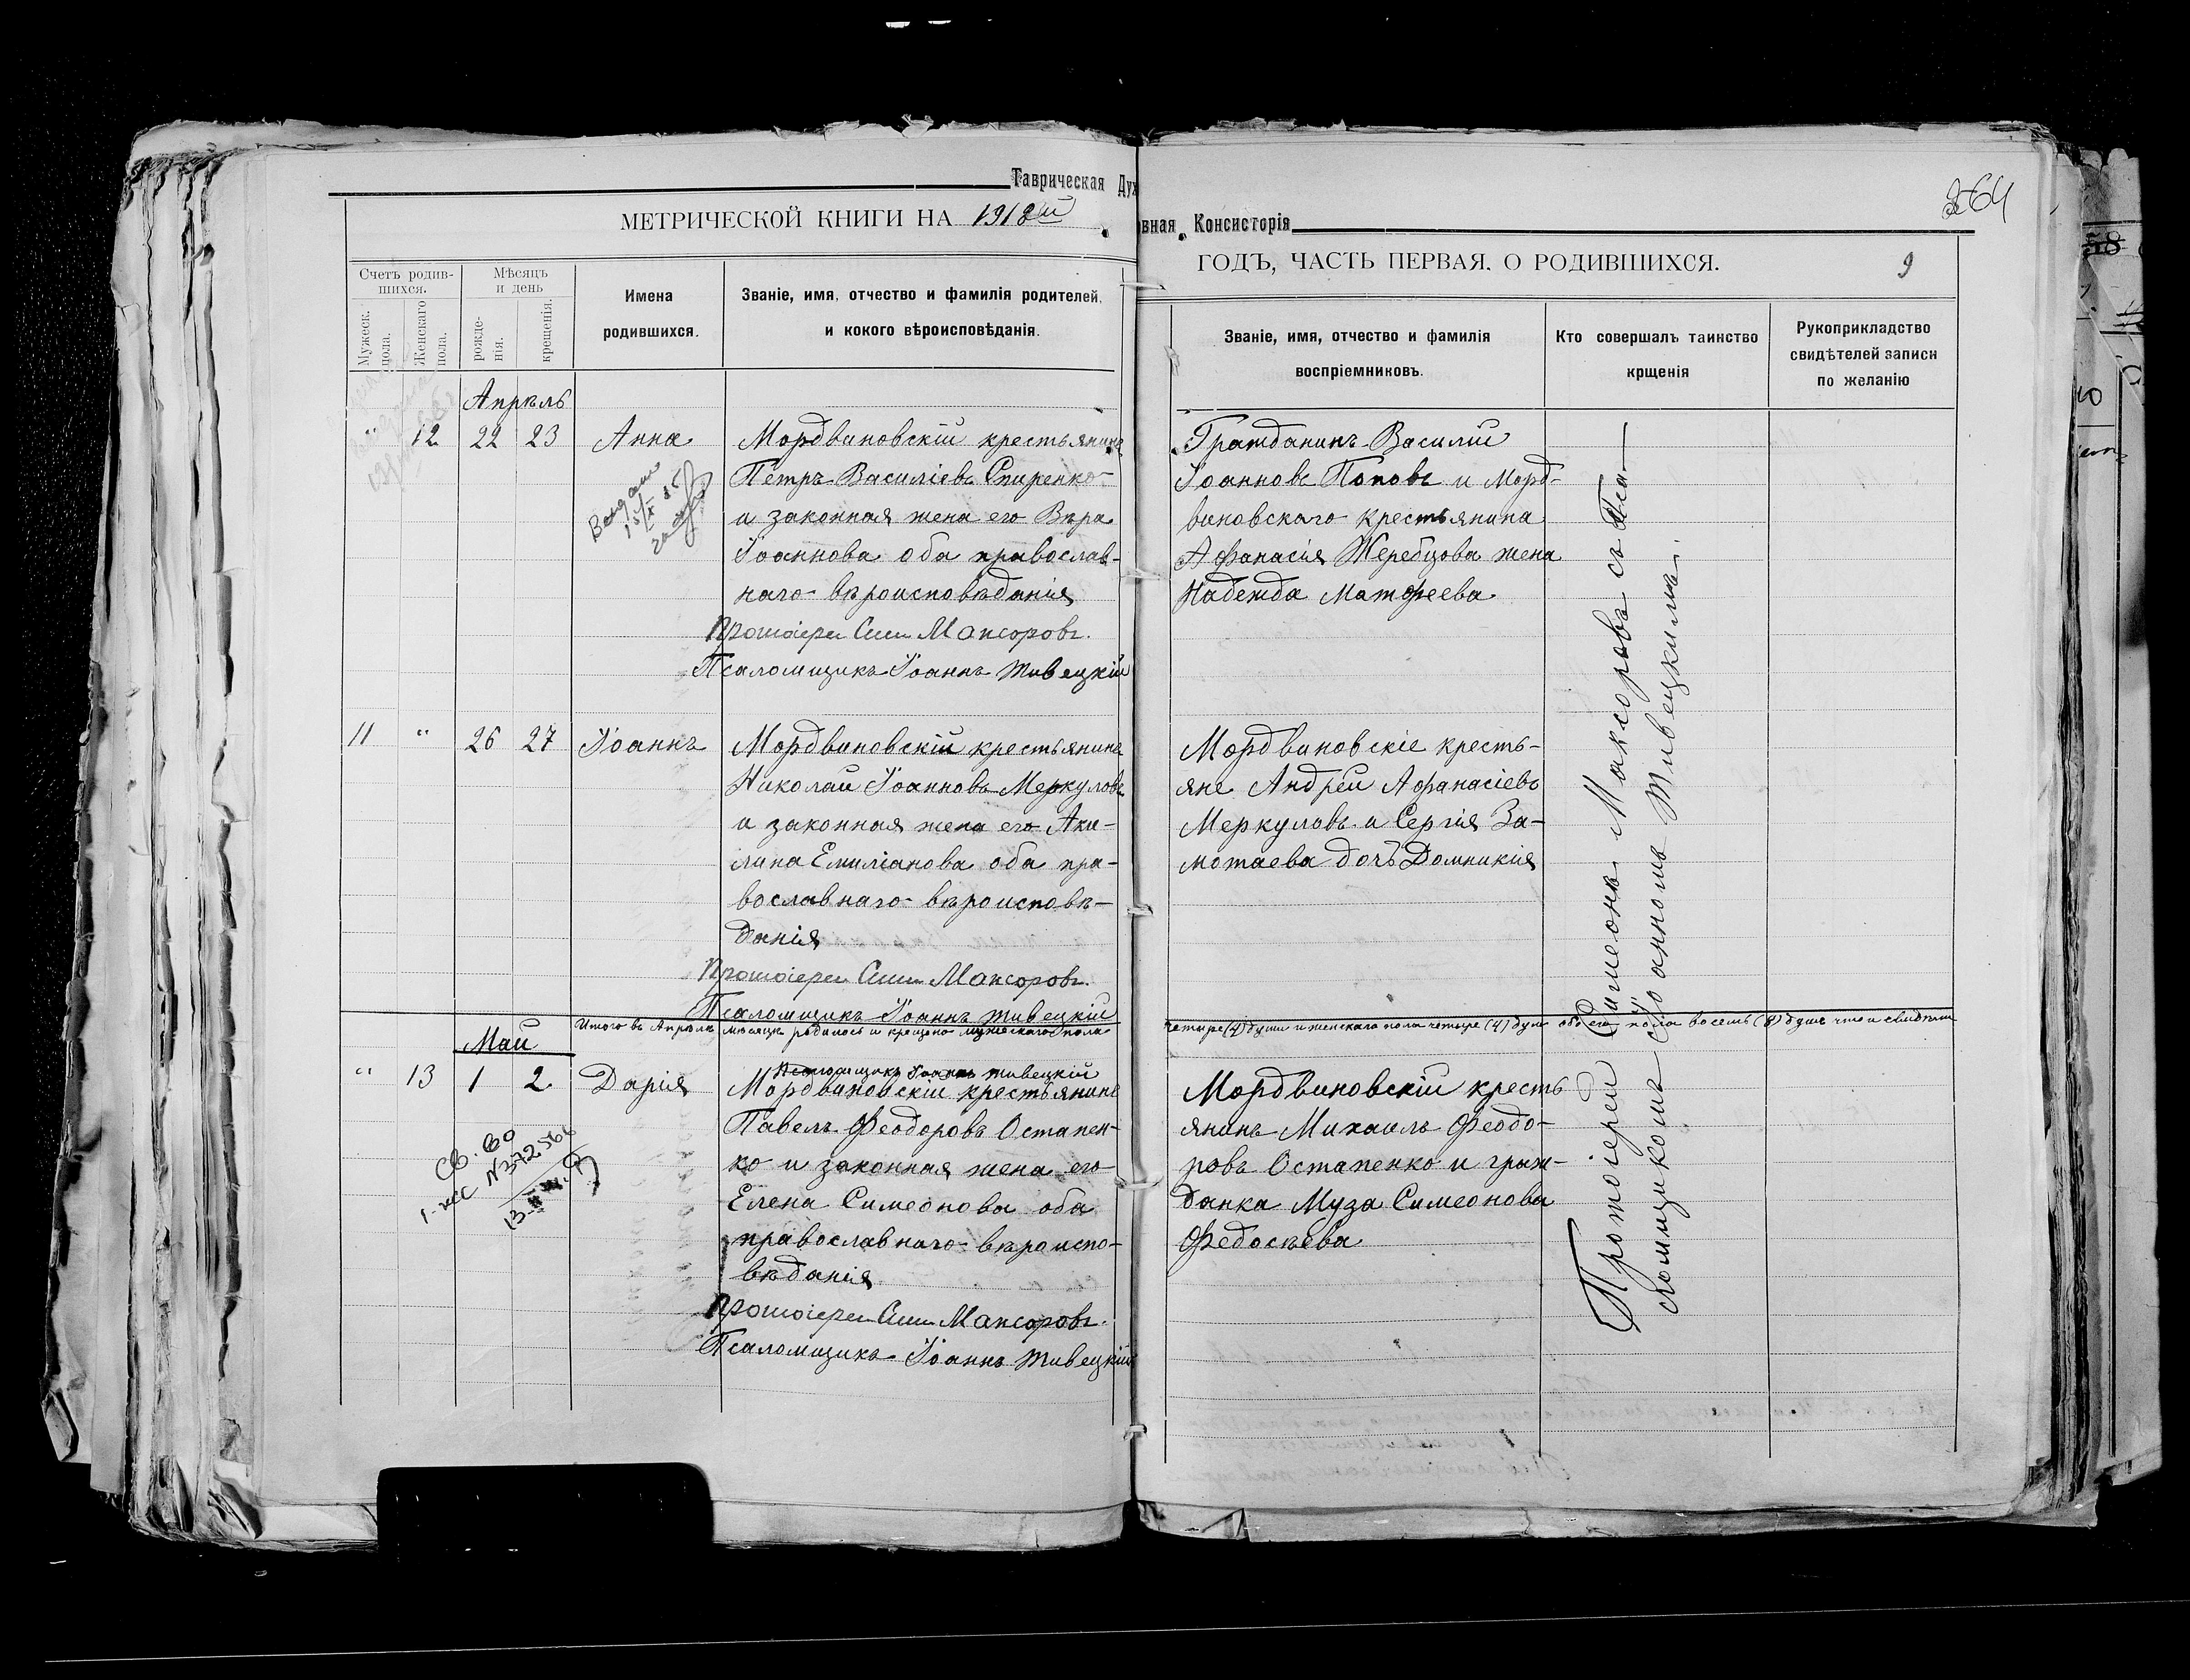 Таврическая Духовная Консисторія
264
МЕТРИЧЕСКОЙ КНИГИ НА 1918й
ГОДЪ, ЧАСТЬ ПЕРВАЯ. О РОДИВШИХСЯ.
9
Счетъ родив-
шихся.
Мужеск. пола.
Женскаго пола.
Мѣсяцъ
и день
рожде-
нія.
крещенія.
Имена
родившихся.
Званіе, имя, отчество и фамилія родителей,
и кокого вѣроисповѣданія.
Званіе, имя, отчество и фамилія
воспріемниковъ.
Кто совершалъ таинство
крщенія
Рукоприкладство
свидѣтелей записи
по желанію
Апрѣль
" 12 22 23 Анна
Мордвиновскій крестьянинъ
Петръ Василіевъ Спиренко
и законная жена его Вѣра
Іоаннова оба православ-
наго вѣроисповѣданія
Протоіерей Сим Максоровъ.
Псаломщикъ Іоаннъ Живецкій
Гражданинъ Василій
Іоанновъ Поповъ и Морд-
виновскаго крестьянина
Афанасія Жеребцова жена
Надежда Матфеева
11 " 26 27 Іоаннъ
Мордвиновскій крестьянинъ
Николай Іоанновъ Меркуловъ
и законная жена его Аки-
лина Емиліанова оба пра-
вославнаго вѣроисповѣ-
данія
Протоіерей Сим Максоровъ.
Псаломщикъ Іоаннъ Живецкій
Мордвиновскіе кресть-
яне Андрей Афанасіевъ
Меркуловъ и Сергія За-
мотаева дочь Домникія
Итого въ Апрѣлѣ мѣсяцѣ родилось и крещено мужескаго пола
четыре (4) души и женскаго пола четыре (4) душ обоего пола восемь (8) душъ что и свидѣтел
Псаломщикъ Іоаннъ Живецкій
Май
" 13 1 2 Дарія
Св. во
N 372566
Мордвиновскій крестьянинъ
Павелъ Феодоровъ Остапен-
ко и законная жена его
Елена Симеонова оба
православнаго вѣроиспо-
вѣданія
Протоіерей Сим Максоровъ.
Псаломщикъ Іоаннъ Живецкій
Мордвиновскій кресть
янинъ Михаилъ Феодо-
ровъ Остапенко и граж-
данка Муза Симеонова
Федосѣева
Протоіерей Симеонъ Максоровъ съ Пса-
ломщикомъ Іоанномъ Живецкимъ.